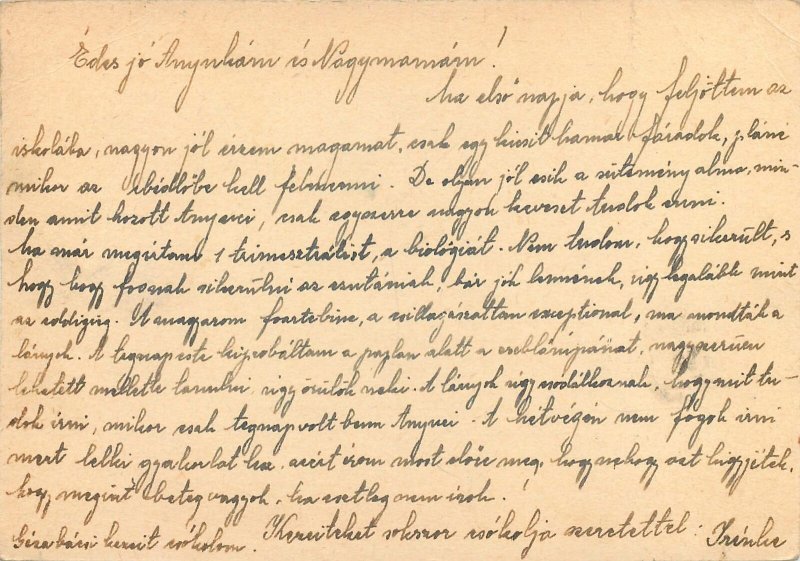 Édes jó Anyukám és Nagymamám!
Ma első napja, hogy feljöttem az
iskolába, nagyon jól érzem magamat, csak egy kicsit hamar fáradok, pláne
mikor az ebédlőbe kell felmenni. De olyan jól esik a sütemény alma, min-
den amit hozott Anyuci, csak egyszerre nagyon keveset tudok enni.
Ma már megírtam 1 trimesztrálist, a biológiát. Nem tudom, hogy sikerült, s
hogy fognak sikerülni az ezutániak, bár jók lennének, úgy legalább mint
az eddigieg. A magyarom foartebine, a csillagászattan exceptional, ma mondták a
lányok. A tegnap este kipróbáltam a paplan alatt a zseblámpámat, nagyszerűen
lehetett mellette tanulni, úgy örülök neki. A lányok úgy csodálkoznak, hogy mit tu-
dok írni, mikor csak tegnap volt benn Anyuci. A hétvégén nem fogok írni
mert lelki gyakorlat lesz, azért írom most előre meg, hogy nehogy azt higyjétek,
hogy megint beteg vagyok, ha esetleg nem írok!
Kezeiteket sokszor csókolja szeretettel: Irénke
Géza bácsi kezeit csókolom.